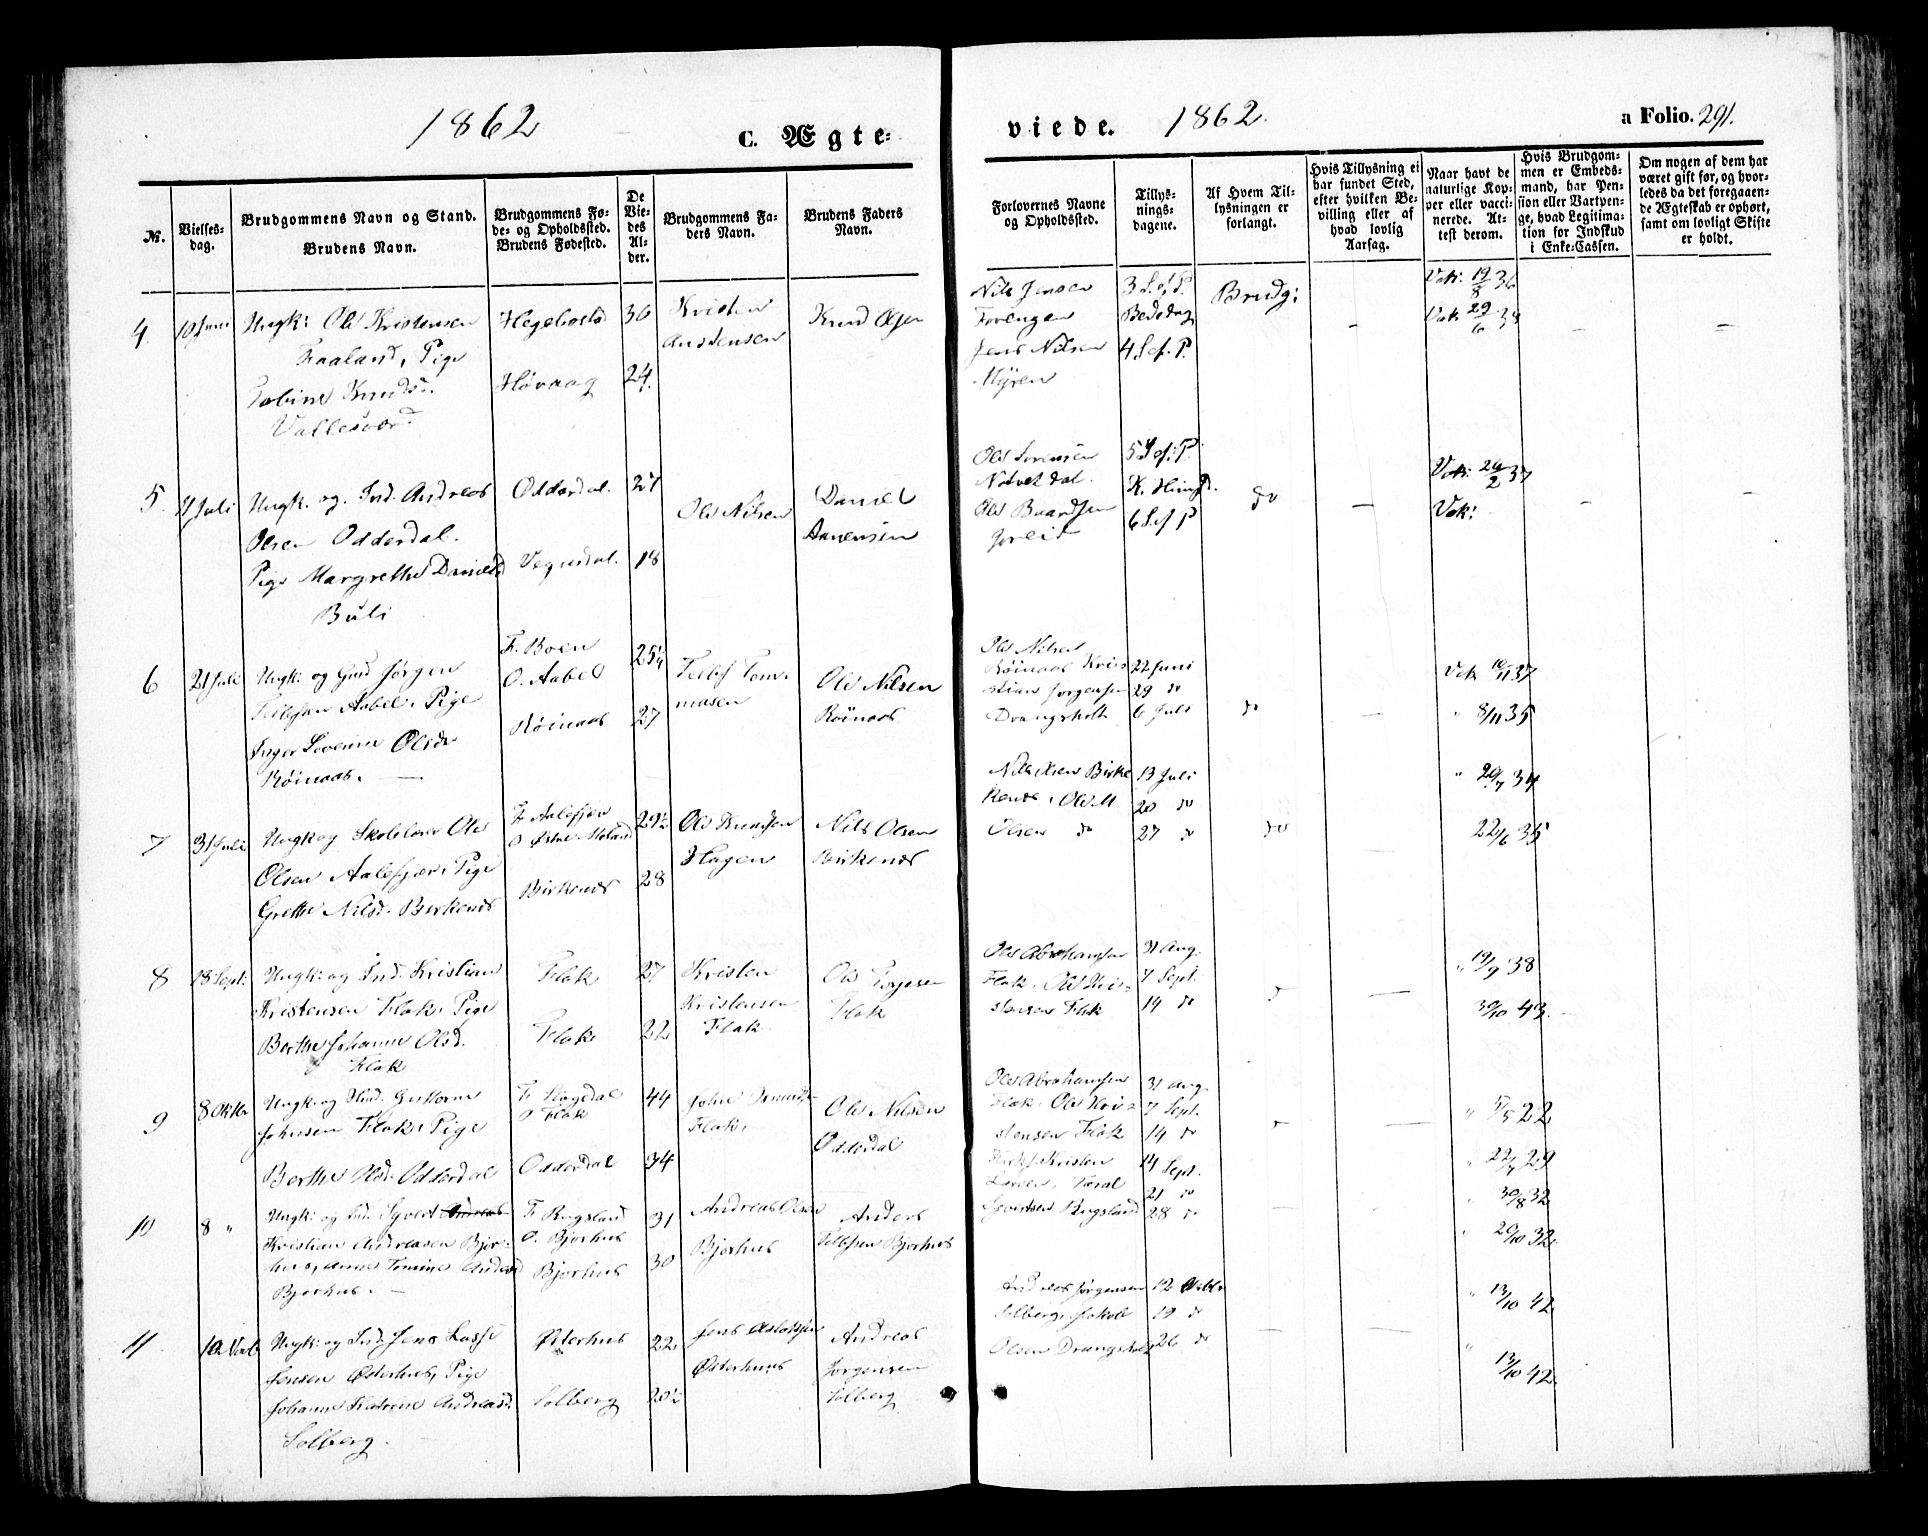 1862
C. Ægte-
viede.
1862.
a Folio. 291.
№.
Vielses-
dag.
Brudgommens Navn og Stand.
Brudens Navn.
Brudgommens Fø-
de- og Opholdssted.
Brudens Fødested.
De
Vie-
des
Al-
der.
Brudgommens Fa-
ders Navn.
Brudens Faders
Navn.
Forlovernes Navne
og Opholdssted.
Tillys-
nings-
dagene.
Af Hvem Til-
lysningen er
forlangt.
Hvis Tillysning ei
har fundet Sted,
efter hvilken Be-
villing eller af
hvad lovlig
Aarsag.
Naar havt de
naturlige Kop-
per eller vacci-
nerede. At-
test derom.
Hvis Brudgom-
men er Embeds-
mand, har Pen-
sion eller Vartpen-
ge, hvad Legitima-
tion for Indskud
i Enke-Cassen.
Om nogen af dem har
været gift før, og hvor-
ledes da det foregaaen-
de Ægteskab er ophørt,
samt om lovligt Skifte
er holdt.
4.
10 Juni
Ungk: Ole Kristensen
Faaland, Pige
Knudsd.
Vallesvær
Hegebostad
Høvaag
36
24.
Kristen
Knud Olsen
Nils Jensen
Jens Nilsen
Myren
3 S. ef. P.
Bededag
4 S. ef. P.
Brudg:
Vak: 19/8 36
Vak: 29/6 34
5.
11 Juli
Ungk. og Ind. Andreas
Olsen Odderdal.
Pige Margrethe Danielsd
Buli
Odderdal.
Vegusdal.
27
18
Ole Nilsen
Daniel
Aanensen
Ole Sørensen
Ole Baardsen
5 S. ef. P.
K. Himf.
6 S. ef. P
do
Vak: 26/2 37
Vak:
6
21 Juli
Ungk: og Gmd Jørgen
Tellefsen Aabel, Pige
Inger Severine Olsdr
Röinaas.
F. Boen
O. Aabel
Röinaas
25¼
27
Tellef Tom-
masen
Ole Nilsen
Röinaas
Ole Nilsen
Röinaas Kris-
stian Jørgensen
Drangsholt
22 Juni
29 do
6 Juli
do
Vak 10/11 37
" 8/11 35
7
31 Juli
Ungk og Skolelærer Ole
Olsen Aalefjær, Pige
Grethe Nilsd. Birkenes
F. Aalefjær
O Østre-Moland
Birkenes
29½
28
Ole Knudsen
Hagen
Nils Olsen
Birkenes
Nils Olsen Birke
kenes, Ole M
Olsen do
13 Juli
20 do
27 do
do
" 20/7 34
22/6 35
8
18 Sept:
Ungk: og Ind. Kristian
Kristensen Flak, Pige
Berthe Johanne Olsd.
Flak
Flak
Flak
27
22
Kristen
Kristensen
Flak.
Ole Torjesen
Flak
Ole Abrahamsen
Flak, Ole Kri-
stensen Flak
31 Aug.
7 Sept.
14 do
" 19/9 38
30/10 43.
9
8 Oktbr
Ungk. og Gutterm
Johnsen Flak, Pige
Berthe Olsd. Odderdal
F. Slogdal
O Flak
Odderdal
44
34
John
Flak,
Ole Nilsen
Odderdal
Ole Abrahamsen
Flak, Ole Kri-
stensen Flak
31 Aug.
7 Sept.
14 do
" 5/5 22
" 22/7 29
10
8 "
Ungk: og Ind. Syvert Andreas
Kristian Andreasen Bjor-
hus, Anne Tomine Andersd
Bjorhus.
F. Rugsland
O. Bjorhus
Bjorhus
31
30
Andreas Olsen
Bjorhus
Anders
Tellefsen Bjorhus
Kristen
Larsen,
Syvertsen Rugsland
14 Sept.
21 do
28 do
" 30/8 32
" 20/10 32.
11.
10 Novb
Ungk: og Ind. Jens Lasse
Jensen Østerhus, Pige
Johanne Katrine Andreasd.
Solberg.
Østerhus
Solberg
22
20½
Jens Aslaksen
Østerhus
Andreas
Jørgensen
Solberg
Andreas Jørgensen
Solberg, Jakob
Olsen Drangsholt
12 Oktbr
19 do
26 do
" 13/10 42
" 13/10 42.